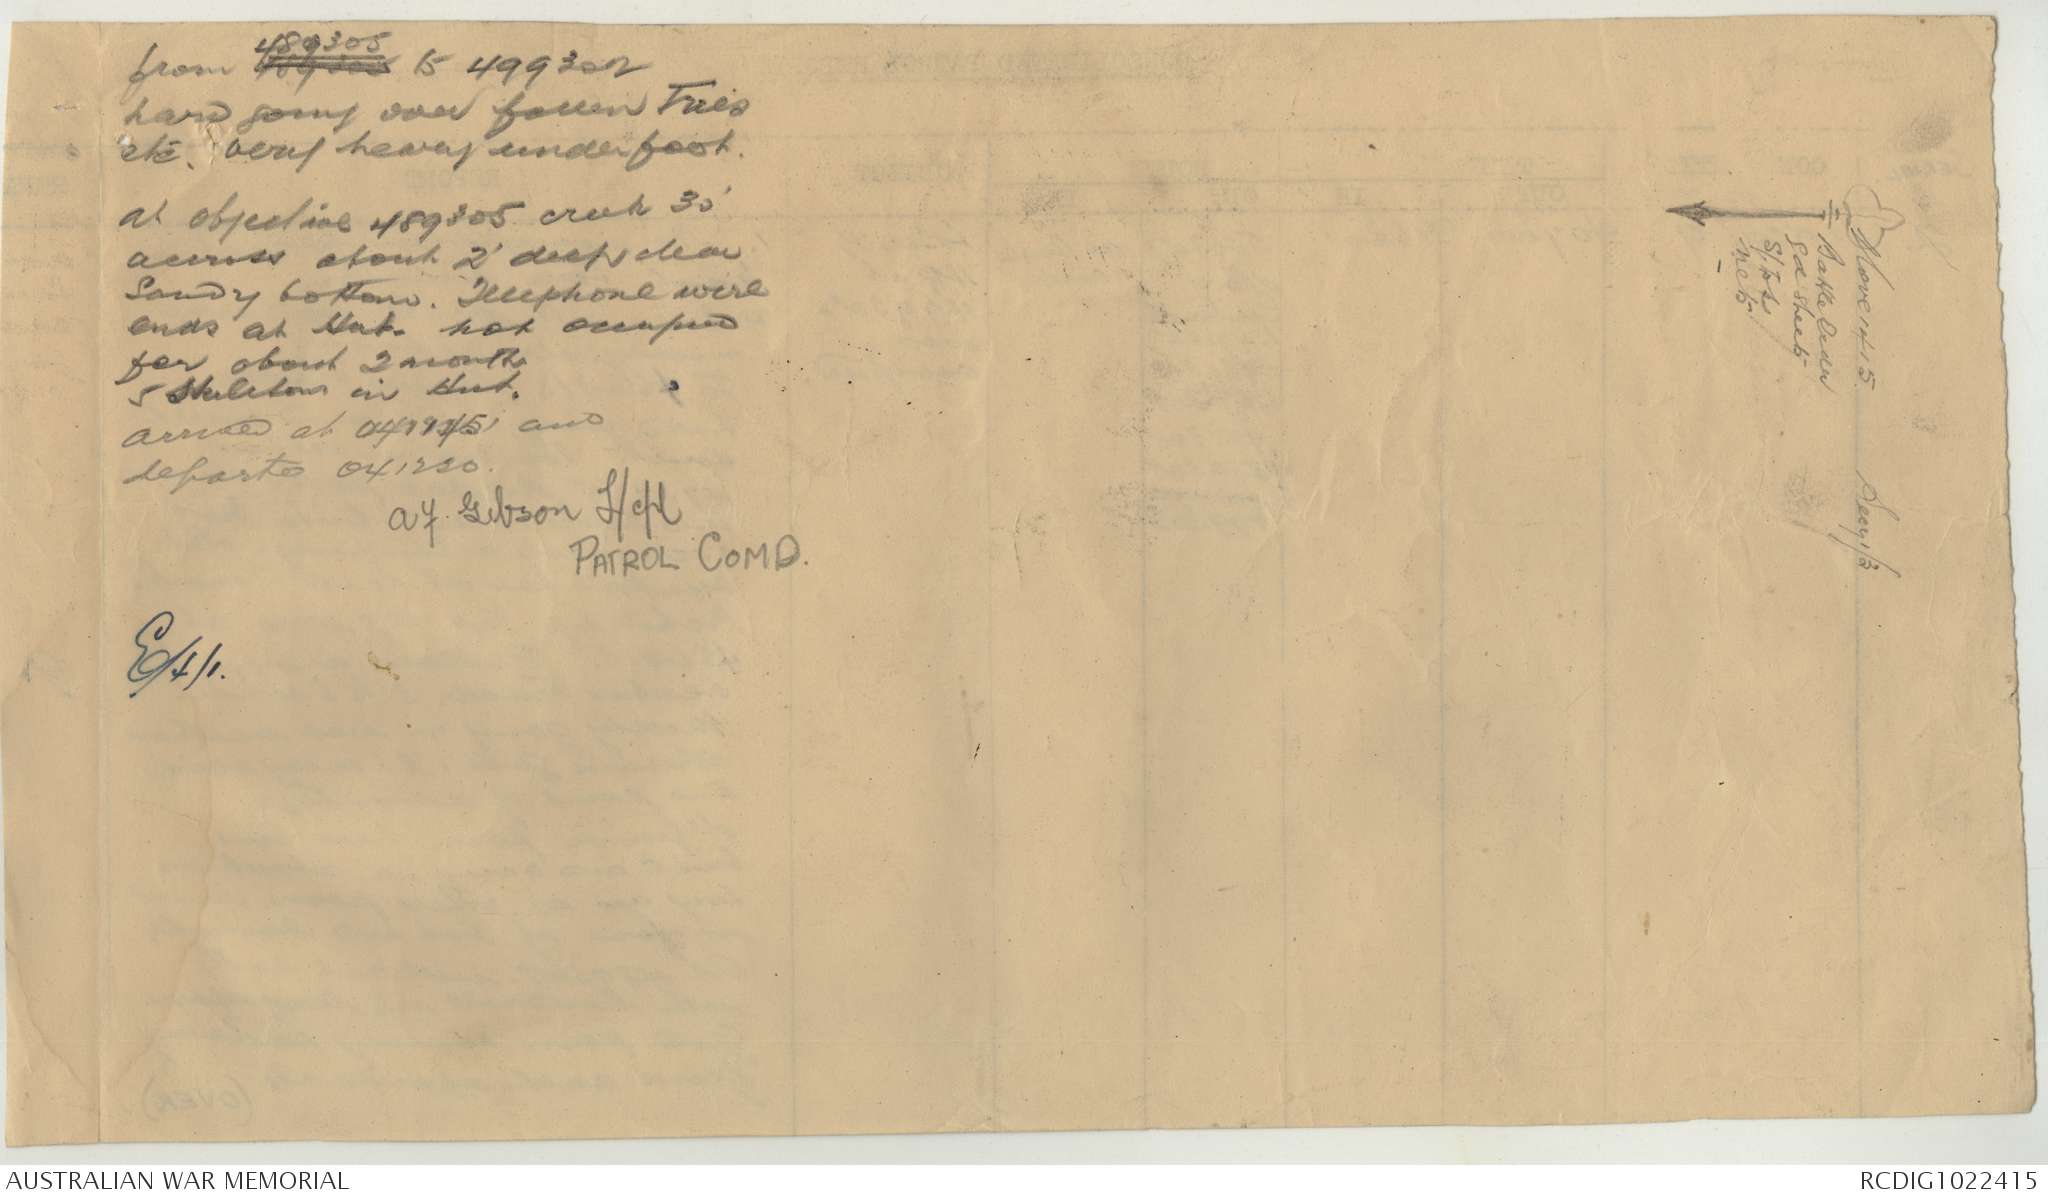 489305
from to 499302
hard going over fallen Trees
etc. very heavy underfoot.
at objective 489305 creek 30'
across about 2' deep, clear
Sandy bottom. Telephone wire
ends at Hut. not occupied
for about 2 months
5 Skeletons in Hut.
arrived at and
departed 041230.
A J Gibson L/Cpl
PATROL COMD.
E/4/1.
Move 14 & 15.
Battle Order
Gd Sheets
Nets
(OVER).
AUSTRALIAN WAR MEMORIAL
RCDIG1022415